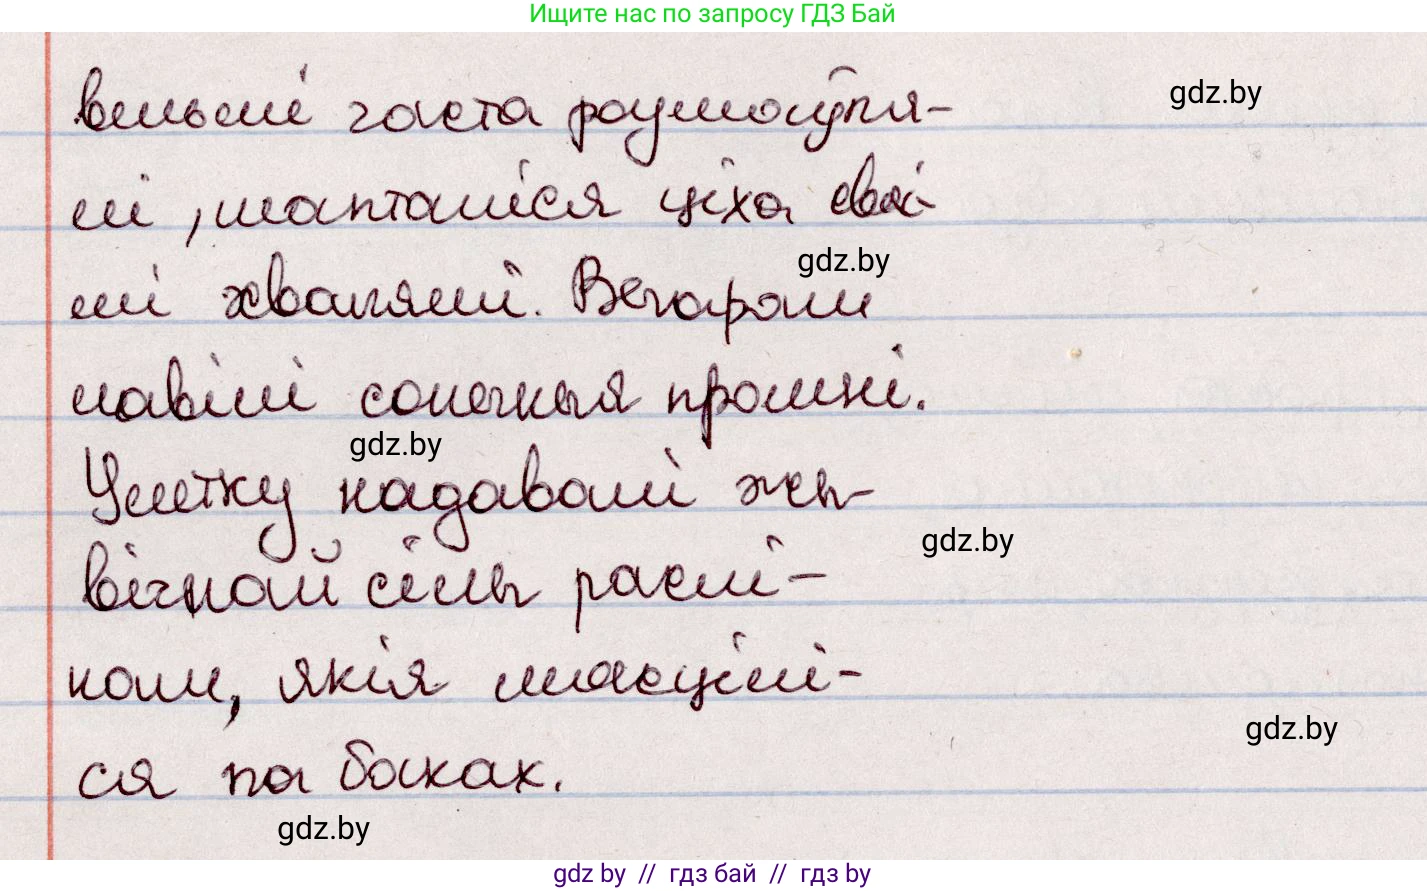 Ищите нас по запросу ГДЗ Бай
вельмі часта размаўля-
лі, шапталіся ціха сваі-
мі хвалямі. Вечарам
лавілі сонечныя промні.
Улетку надавалі жы-
вічнай сілы раслі-
нам, якія масціли-
ся па баках.
gdz.by
gdz.by
gdz.by
gdz.by
gdz.by
gdz.by
gdz by // гдз бай // гдз by